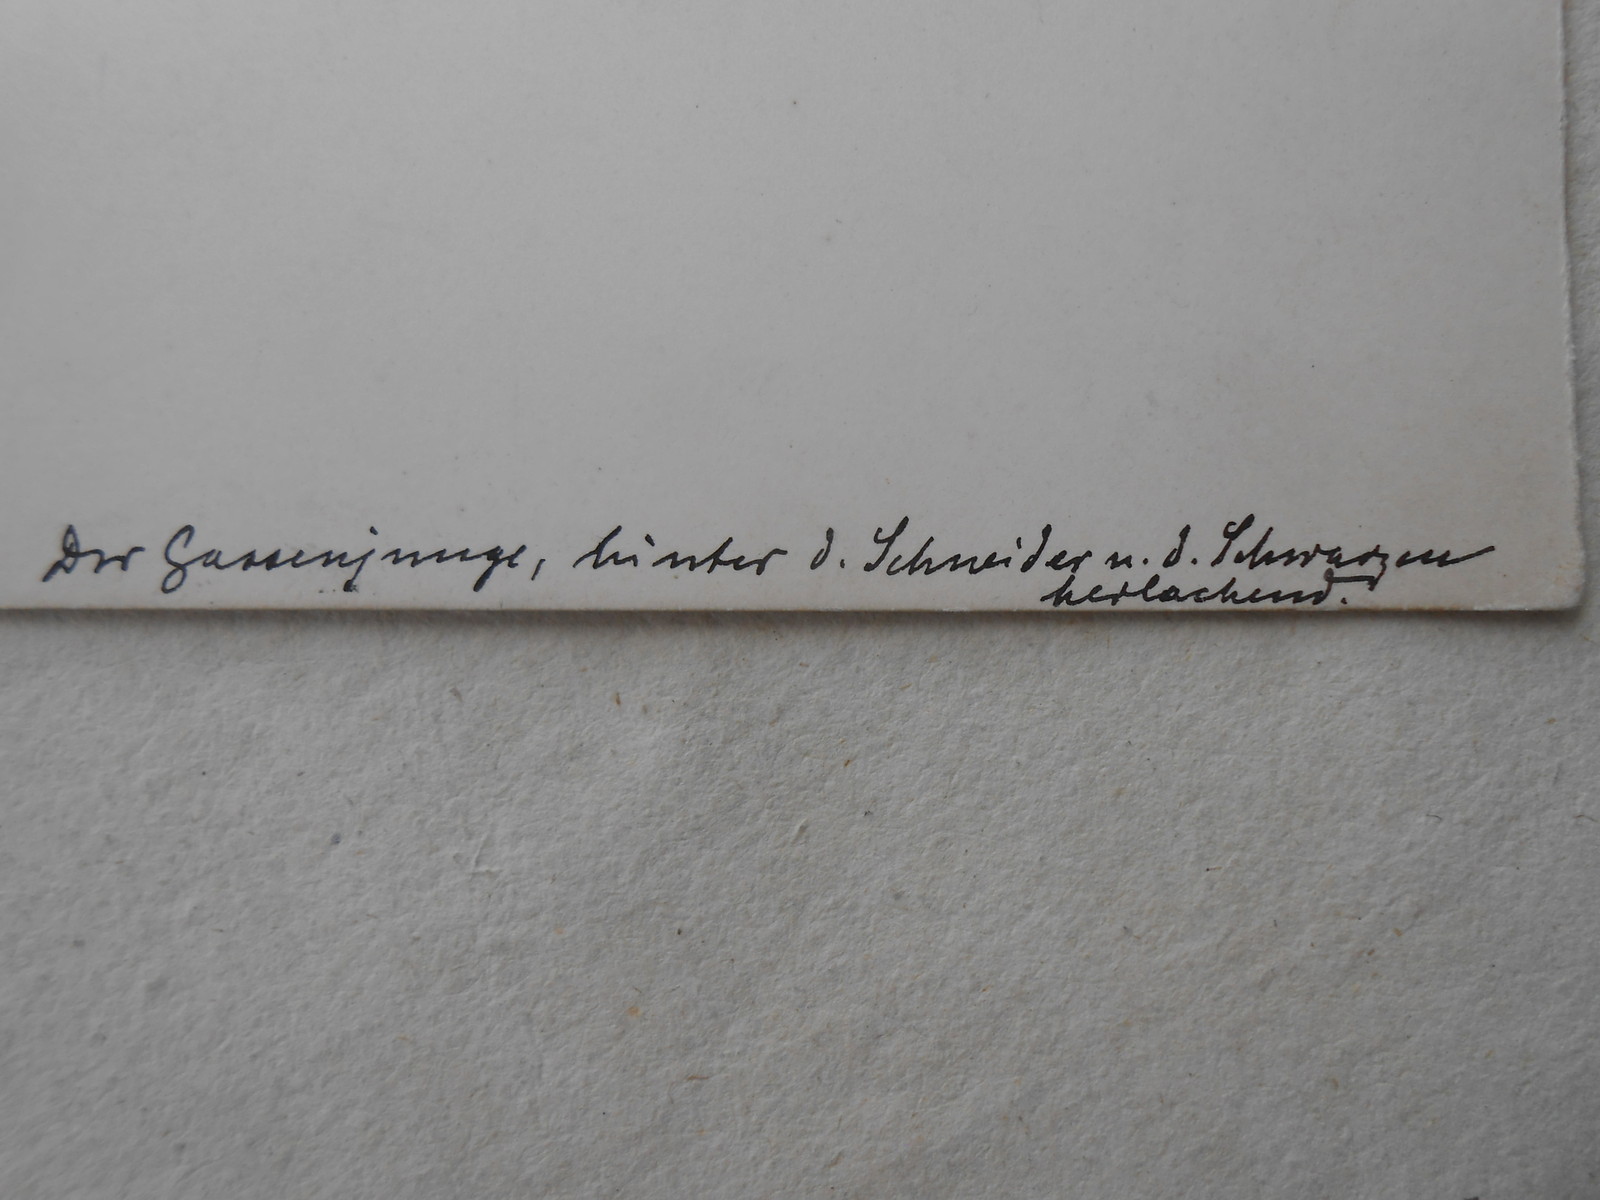 Der Gassenjunge, hinter d. Schneider u. d. Schwarzen
herlachend.